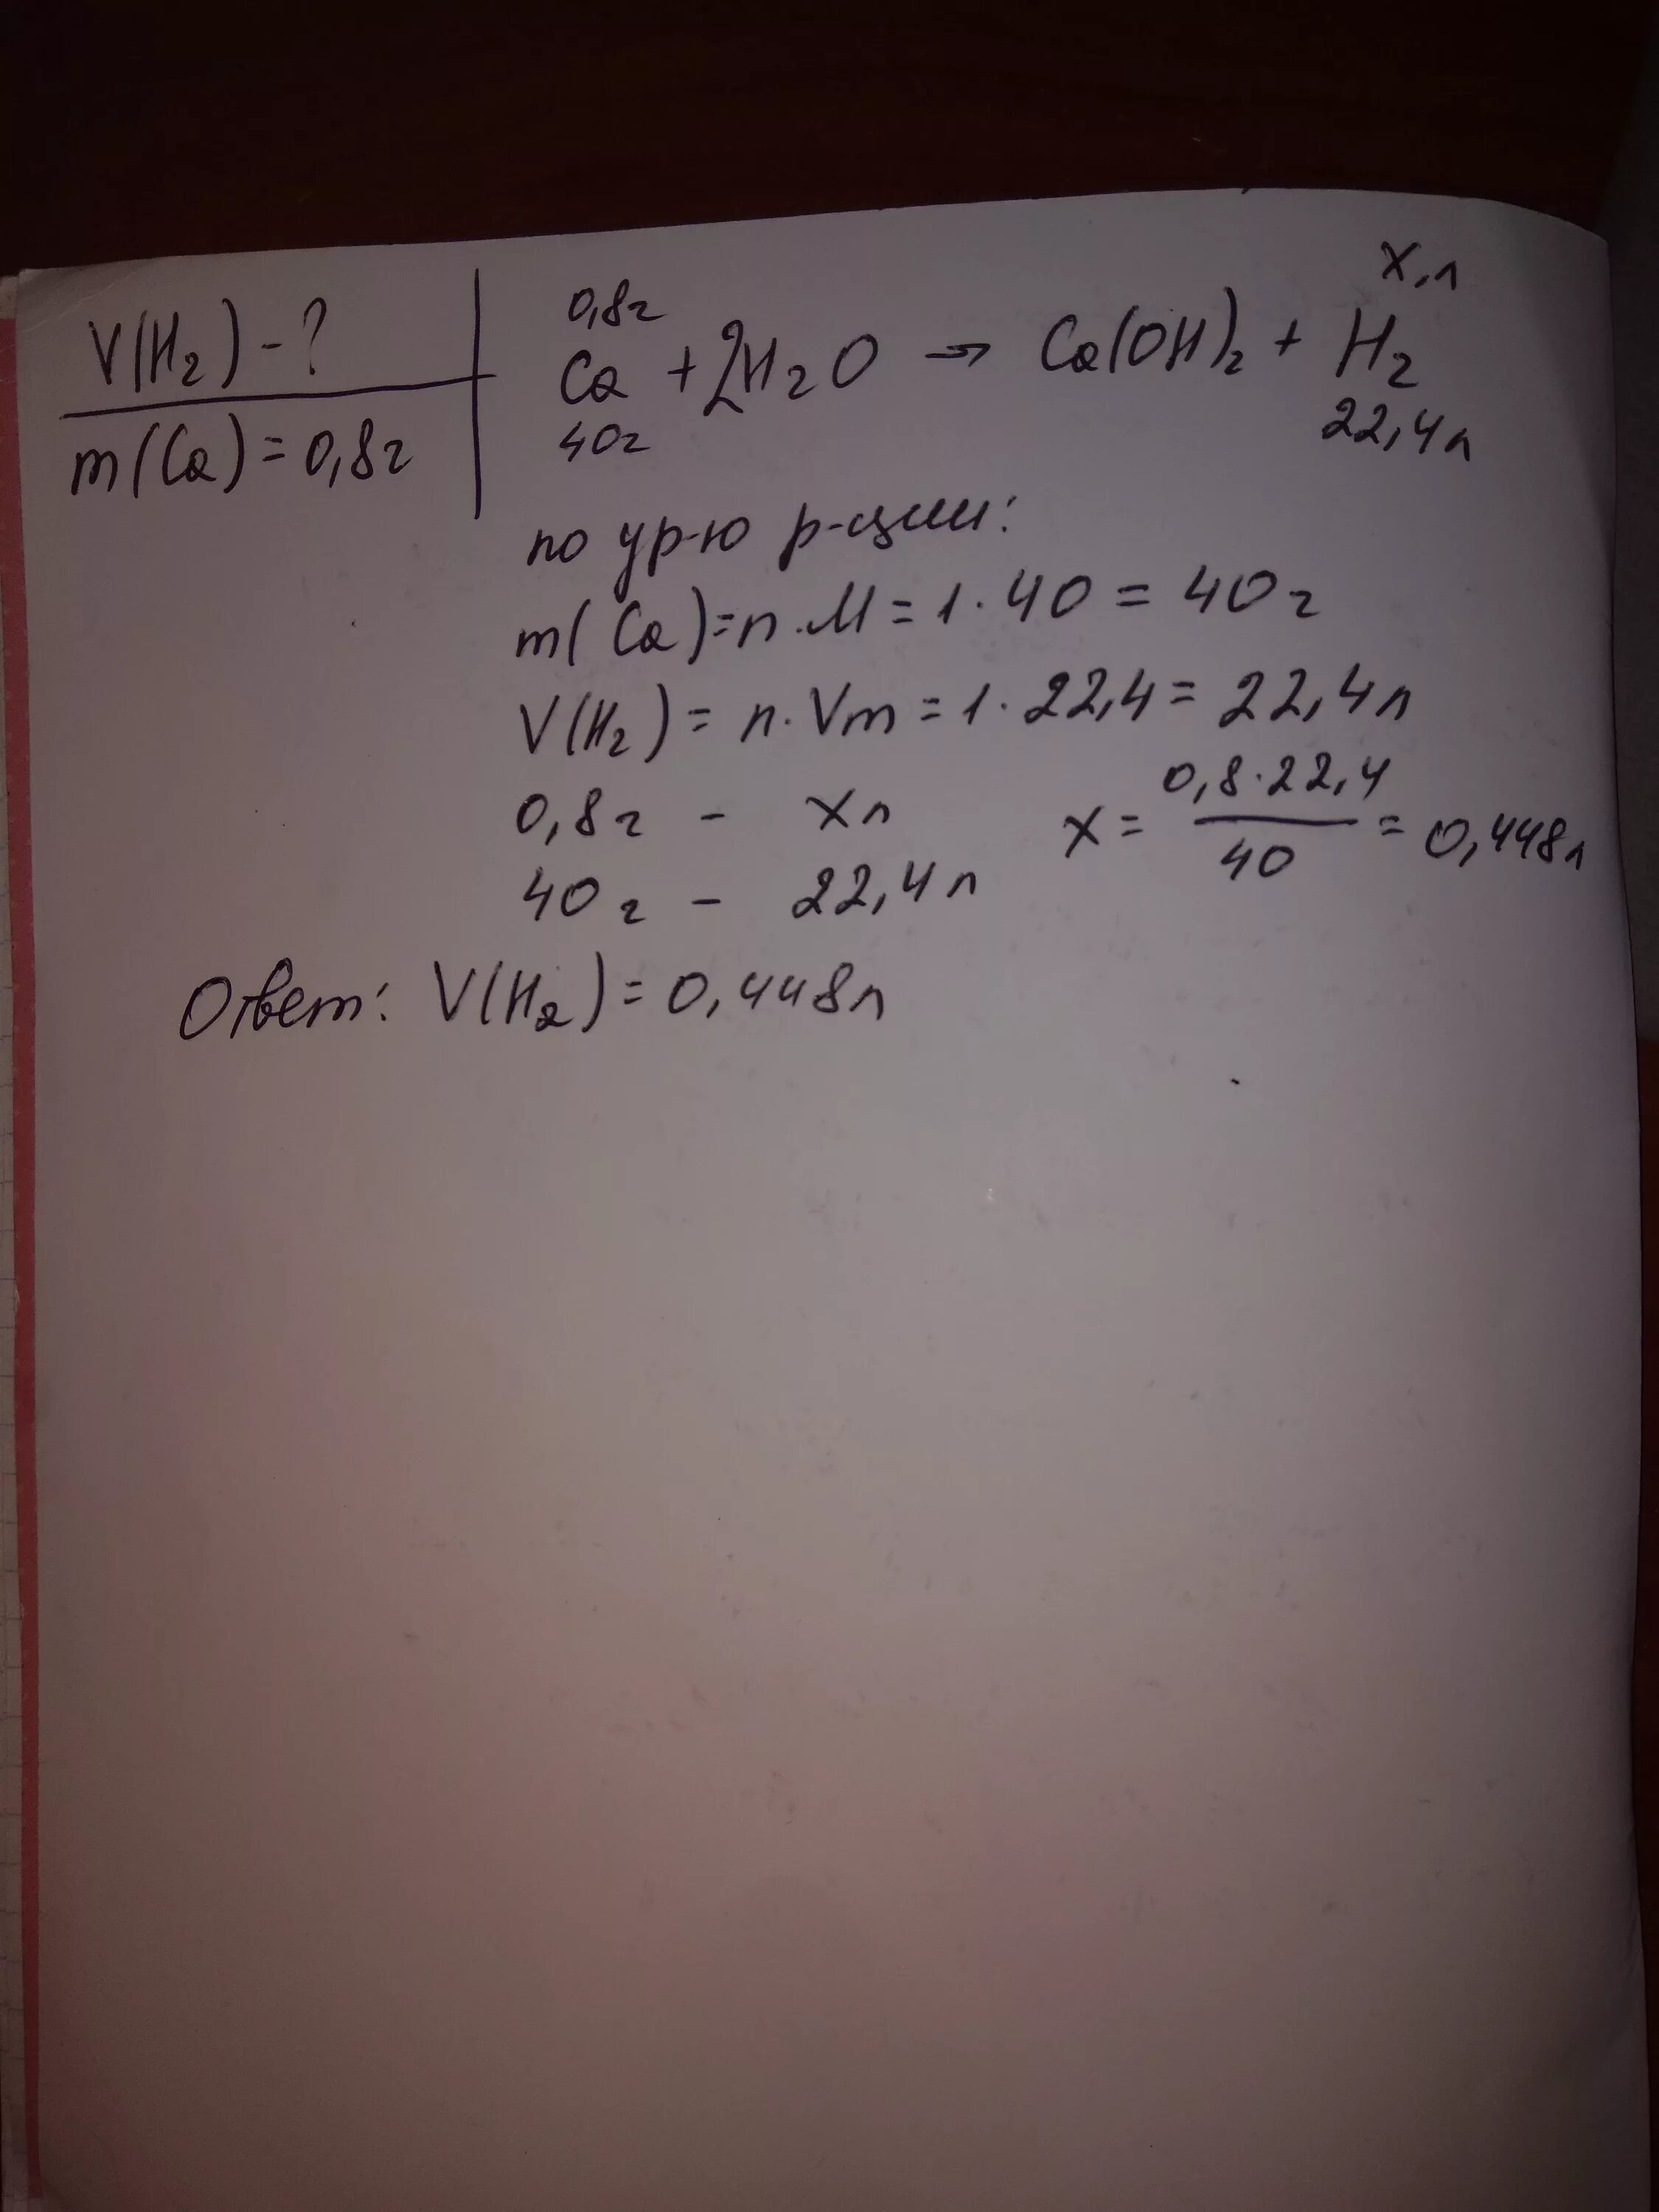 V(H₂) - ?
m(Ca) = 0,8г
0,8г х,л
Ca + 2H₂O → Ca(OH)₂ + H₂
40г 22,4л
по ур-ю р-ции:
m(Ca) = n · M = 1 · 40 = 40г
V(H₂) = n · Vm = 1 · 22,4 = 22,4л
0,8г - хл
40г - 22,4л
x = 0,8·22,4 / 40 = 0,448л
Ответ: V(H₂) = 0,448л